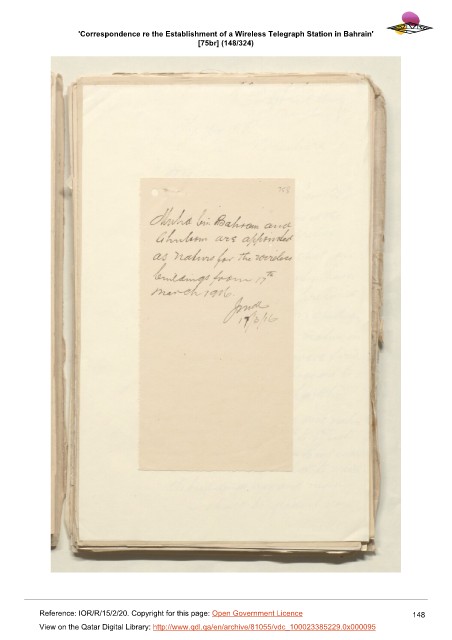 'Correspondence re the Establishment of a Wireless Telegraph Station in Bahrain'
[75br] (148/324)
bin Bahram and
are appointed
as Naturs for the wireless
buildings from 17th
March 1916.
17/3/16
Reference: IOR/R/15/2/20. Copyright for this page: Open Government Licence
148
View on the Qatar Digital Library: http://www.qdl.qa/en/archive/81055/vdc_100023385229.0x000095